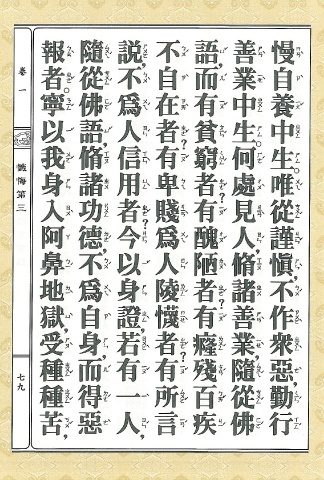 慢自養中生。唯從謹慎，不作衆惡，勤行
善業中生。何處見人，脩諸善業，隨從佛
語，而有貧窮者？有醜陋者？有癃殘百疾
不自在者？有卑賤爲人陵懱者？有所言
說，不爲人信用者？今以身證，若有一人，
隨從佛語，脩諸功德，不爲自身，而得惡
報者。寧以我身入阿鼻地獄，受種種苦，
卷一
懺悔第三
七九